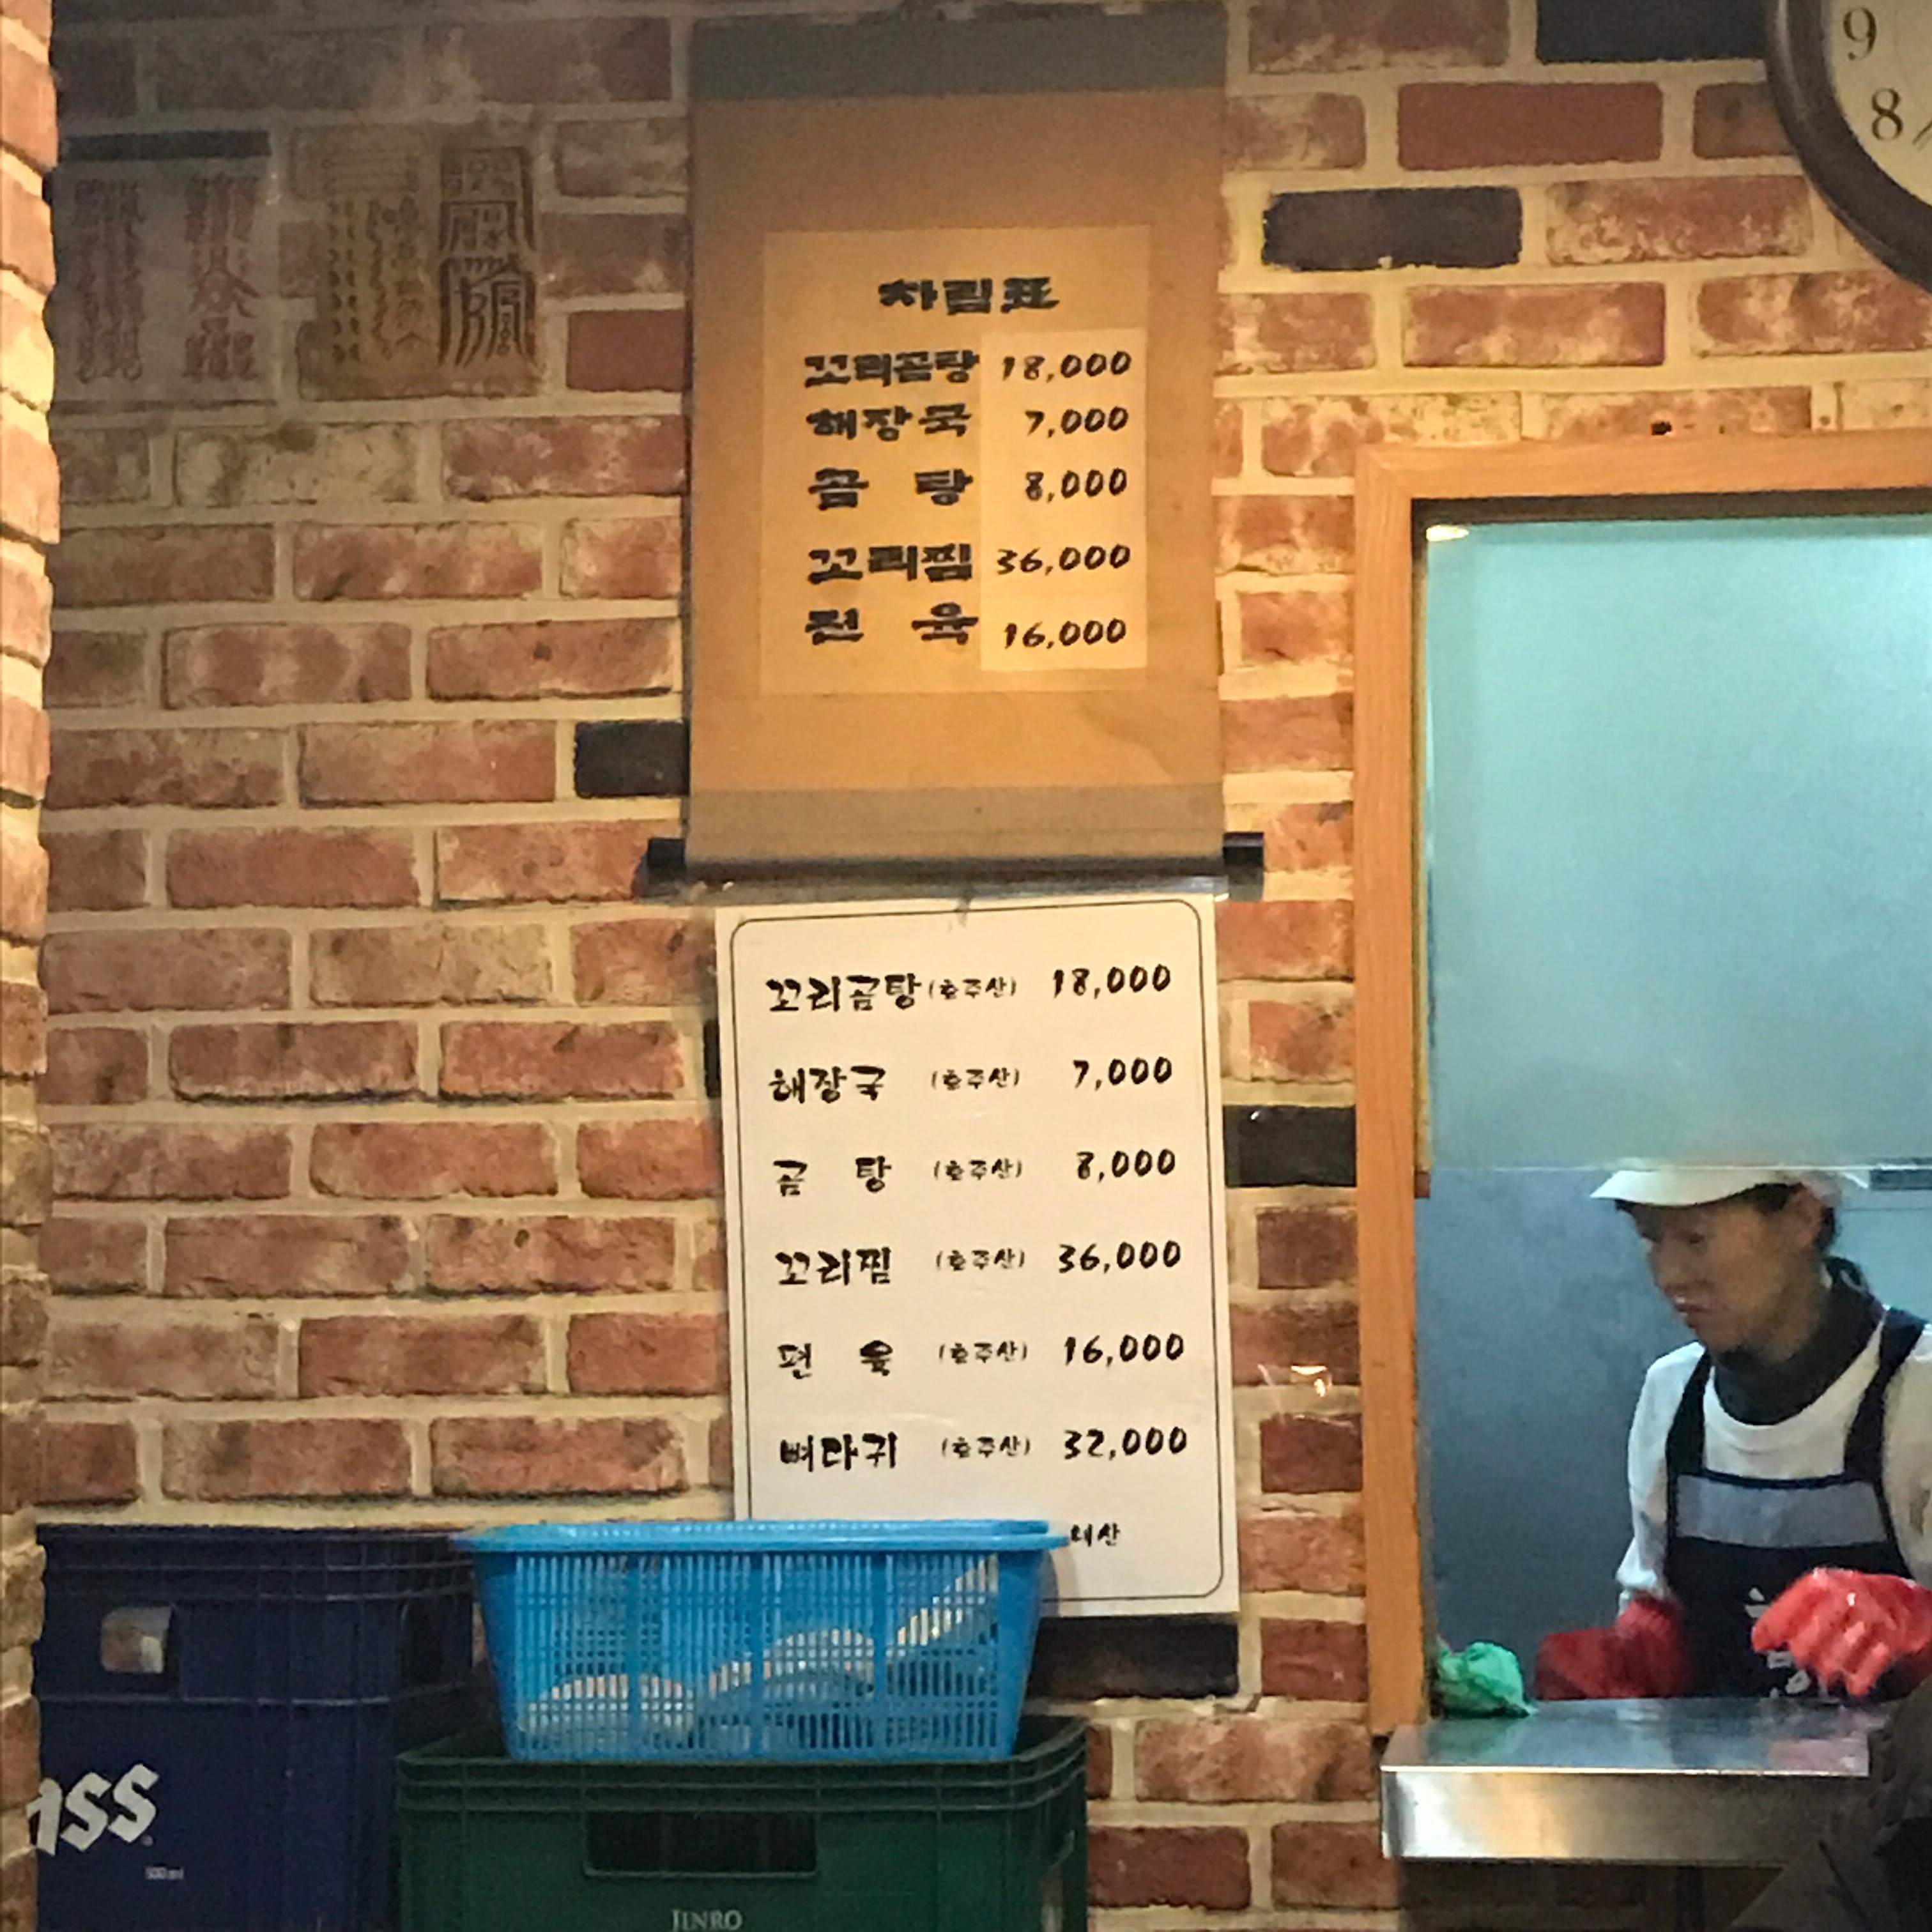 9
8
차림표
꼬리곰탕 18,000
해장국 7,000
곰 탕 8,000
꼬리찜 36,000
편 육 16,000
꼬리곰탕 (호주산) 18,000
해장국 (호주산) 7,000
곰 탕 (호주산) 8,000
꼬리찜 (호주산) 36,000
편 육 (호주산) 16,000
뼈다귀 (호주산) 32,000
내산
ass
500 ml
JINRO